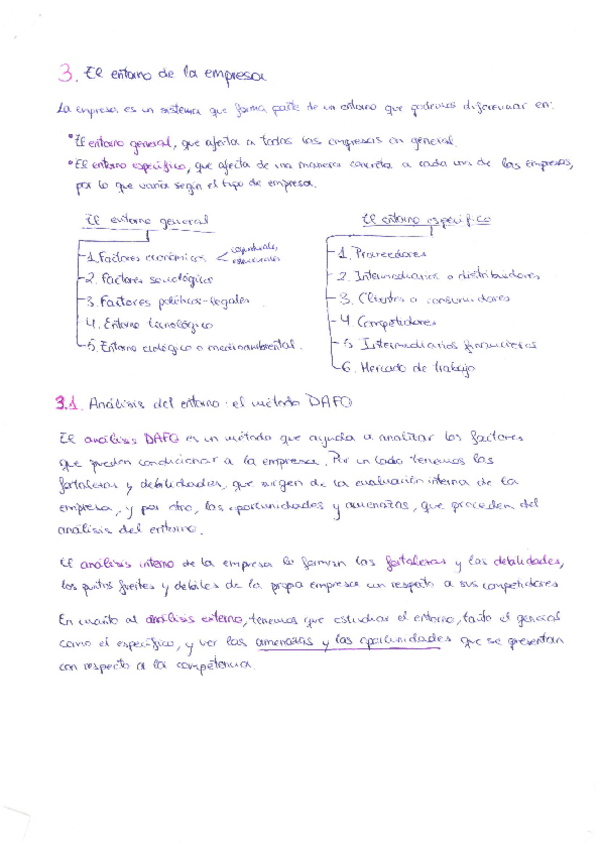 3. El entorno de la empresa
La empresa es un sistema que forma parte de un entorno que podemos diferenciar en:
• El entorno general, que afecta a todas las empresas en general.
• El entorno específico, que afecta de una manera concreta a cada una de las empresas,
por lo que varía según el tipo de empresa.
El entorno general
1. Factores económicos < coyunturales
estructurales
2. Factores sociológicos
3. Factores políticos-legales
4. Entorno tecnológico
5. Entorno ecológico o medioambiental.
El entorno específico
1. Proveedores
2. Intermediarios o distribuidores
3. Clientes o consumidores
4. Competidores
5. Intermediarios financieros
6. Mercado de trabajo
3.1. Análisis del entorno: el método DAFO
El análisis DAFO es un método que ayuda a analizar los factores
que pueden condicionar a la empresa. Por un lado tenemos las
fortalezas y debilidades, que surgen de la evaluación interna de la
empresa, y por otro, las oportunidades y amenazas, que proceden del
análisis del entorno.
El análisis interno de la empresa lo forman las fortalezas y las debilidades,
los puntos fuertes y débiles de la propia empresa con respecto a sus competidores
En cuanto al análisis externo, tenemos que estudiar el entorno, tanto el general
como el específico, y ver las amenazas y las oportunidades que se presentan
con respecto a la competencia.